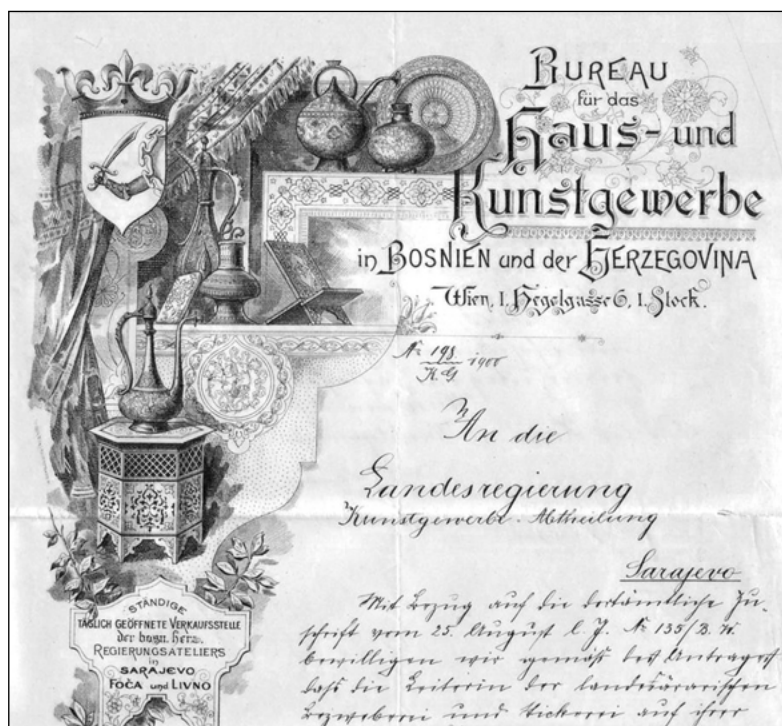 BUREAU
für das
Haus- und
Kunstgewerbe
in BOSNIEN und der HERZEGOVINA
Wien, I. Hegelgasse 6, I. Stock.
№ 198/K.G. 1900
An die
Landesregierung
Kunstgewerbe-Abtheilung
Sarajevo
Mit Bezug auf die dortämtliche Zu-
schrift vom 25. August l. J. № 135/B. H.
bewilligen wir gemäß des Antrages
daß die Leiterin der landesärarischen
Bezweberei und Stickerei auf ihrer
STÄNDIGE
TÄGLICH GEÖFFNETE VERKAUFSSTELLE
der bosn. herz.
REGIERUNGSATELIERS
in
SARAJEVO
FOČA und LIVNO